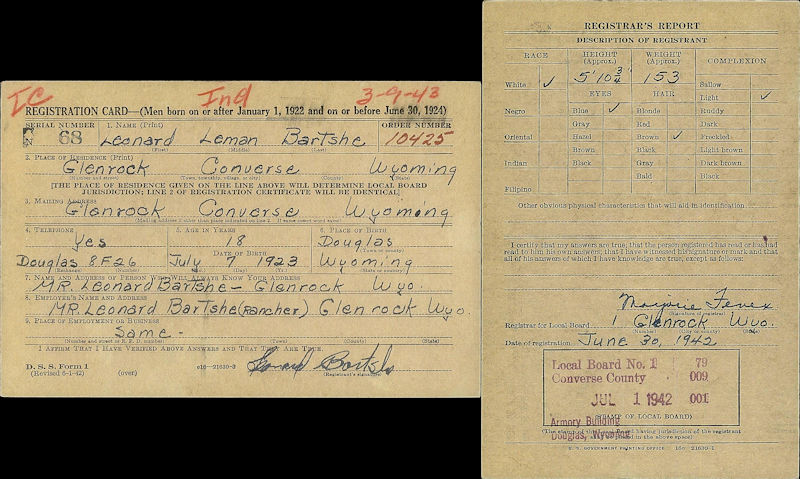 IC Ind 3-9-43
REGISTRATION CARD—(Men born on or after January 1, 1922 and on or before June 30, 1924)
SERIAL NUMBER 1. NAME (Print) ORDER NUMBER
68 Leonard Leman Bartshe 10425
(First) (Middle) (Last)
2. PLACE OF RESIDENCE (Print)
Glenrock Converse Wyoming
(Number and street) (Town, township, village, or city) (County) (State)
[THE PLACE OF RESIDENCE GIVEN ON THE LINE ABOVE WILL DETERMINE LOCAL BOARD
JURISDICTION; LINE 2 OF REGISTRATION CERTIFICATE WILL BE IDENTICAL]
3. MAILING ADDRESS
Glenrock Converse Wyoming
[Mailing address if other than place indicated on line 2. If same insert word same]
4. TELEPHONE 5. AGE IN YEARS 6. PLACE OF BIRTH
Yes 18 Douglas
DATE OF BIRTH (Town or county)
Douglas 8F26 July 7 1923 Wyoming
(Exchange) (Number) (Mo.) (Day) (Yr.) (State or country)
7. NAME AND ADDRESS OF PERSON WHO WILL ALWAYS KNOW YOUR ADDRESS
MR. Leonard Bartshe - Glenrock Wyo.
8. EMPLOYER'S NAME AND ADDRESS
MR. Leonard Bartshe (Rancher) Glenrock Wyo.
9. PLACE OF EMPLOYMENT OR BUSINESS
Same -
(Number and street or R. F. D. number) (Town) (County) (State)
I AFFIRM THAT I HAVE VERIFIED ABOVE ANSWERS AND THAT THEY ARE TRUE.
D. S. S. Form 1
(Revised 6-1-42) (over) c16—21630-3 Leonard Bartshe
(Registrant's signature)
REGISTRAR'S REPORT
DESCRIPTION OF REGISTRANT
RACE HEIGHT (Approx.) WEIGHT (Approx.) COMPLEXION
5' 10 3/4" 153
White ✓ Sallow
EYES HAIR Light ✓
Negro Blue ✓ Blonde Ruddy
Gray Red Dark
Oriental Hazel Brown ✓ Freckled
Brown Black Light brown
Indian Black Gray Dark brown
Bald Black
Filipino
Other obvious physical characteristics that will aid in identification
I certify that my answers are true; that the person registered has read or has had
read to him his own answers; that I have witnessed his signature or mark and that
all of his answers of which I have knowledge are true, except as follows:
Marjorie
(Signature of registrar)
Registrar for Local Board 1 Glenrock Wyo.
(Number) (City or county) (State)
Date of registration June 30, 1942
Local Board No. 1 79
Converse County 009
JUL 1 1942 001
(STAMP OF LOCAL BOARD)
Armory Building
Douglas, Wyoming
(The stamp of the Local Board having jurisdiction of the registrant
shall be placed in the above space)
U. S. GOVERNMENT PRINTING OFFICE 16c—21630-1